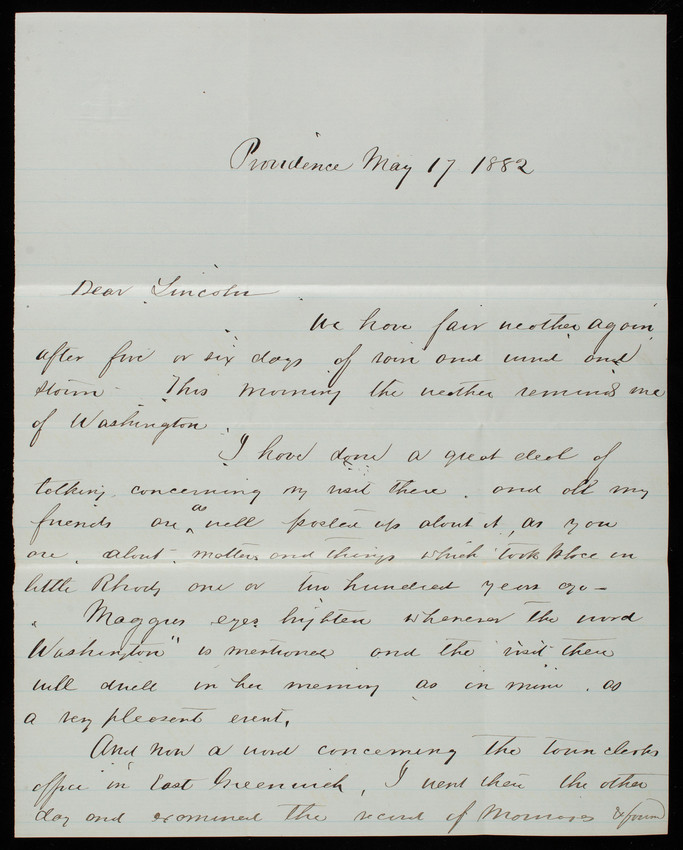 Providence May 17 1882
Dear Lincoln
We have fair weather again
after five or six days of rain and wind and
storm - This morning the weather reminds me
of Washington
I have done a great deal of
talking concerning my visit there. and all my
friends are as well posted up about it, as you
are, about matters and things which took place in
little Rhody one or two hundred years ago -
Maggies eyes brighten whenever the word
Washington" is mentioned and the visit there
will dwell in her memory as in mine. as
a very pleasent event.
And now a word concerning the town clerks
office in East Greenwich, I went there the other
day and examined the record of Marriages & found